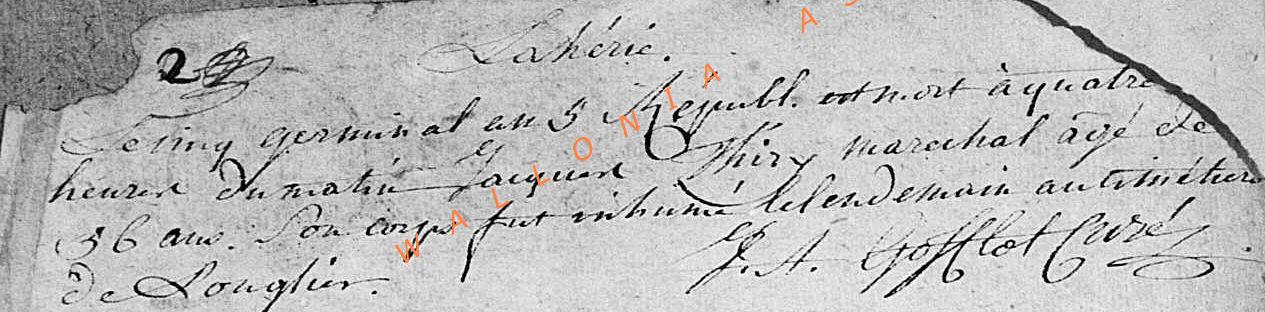 2
Lahérie.
Le cinq germinal an 5 Republ. est mort à quatre
heures du matin Jacques Thiry marechal agé de
56 ans. Son corps fut inhumé le lendemain au cimétiere
de Longlier. J. A. Gofflot Curé
WALLONIA AS